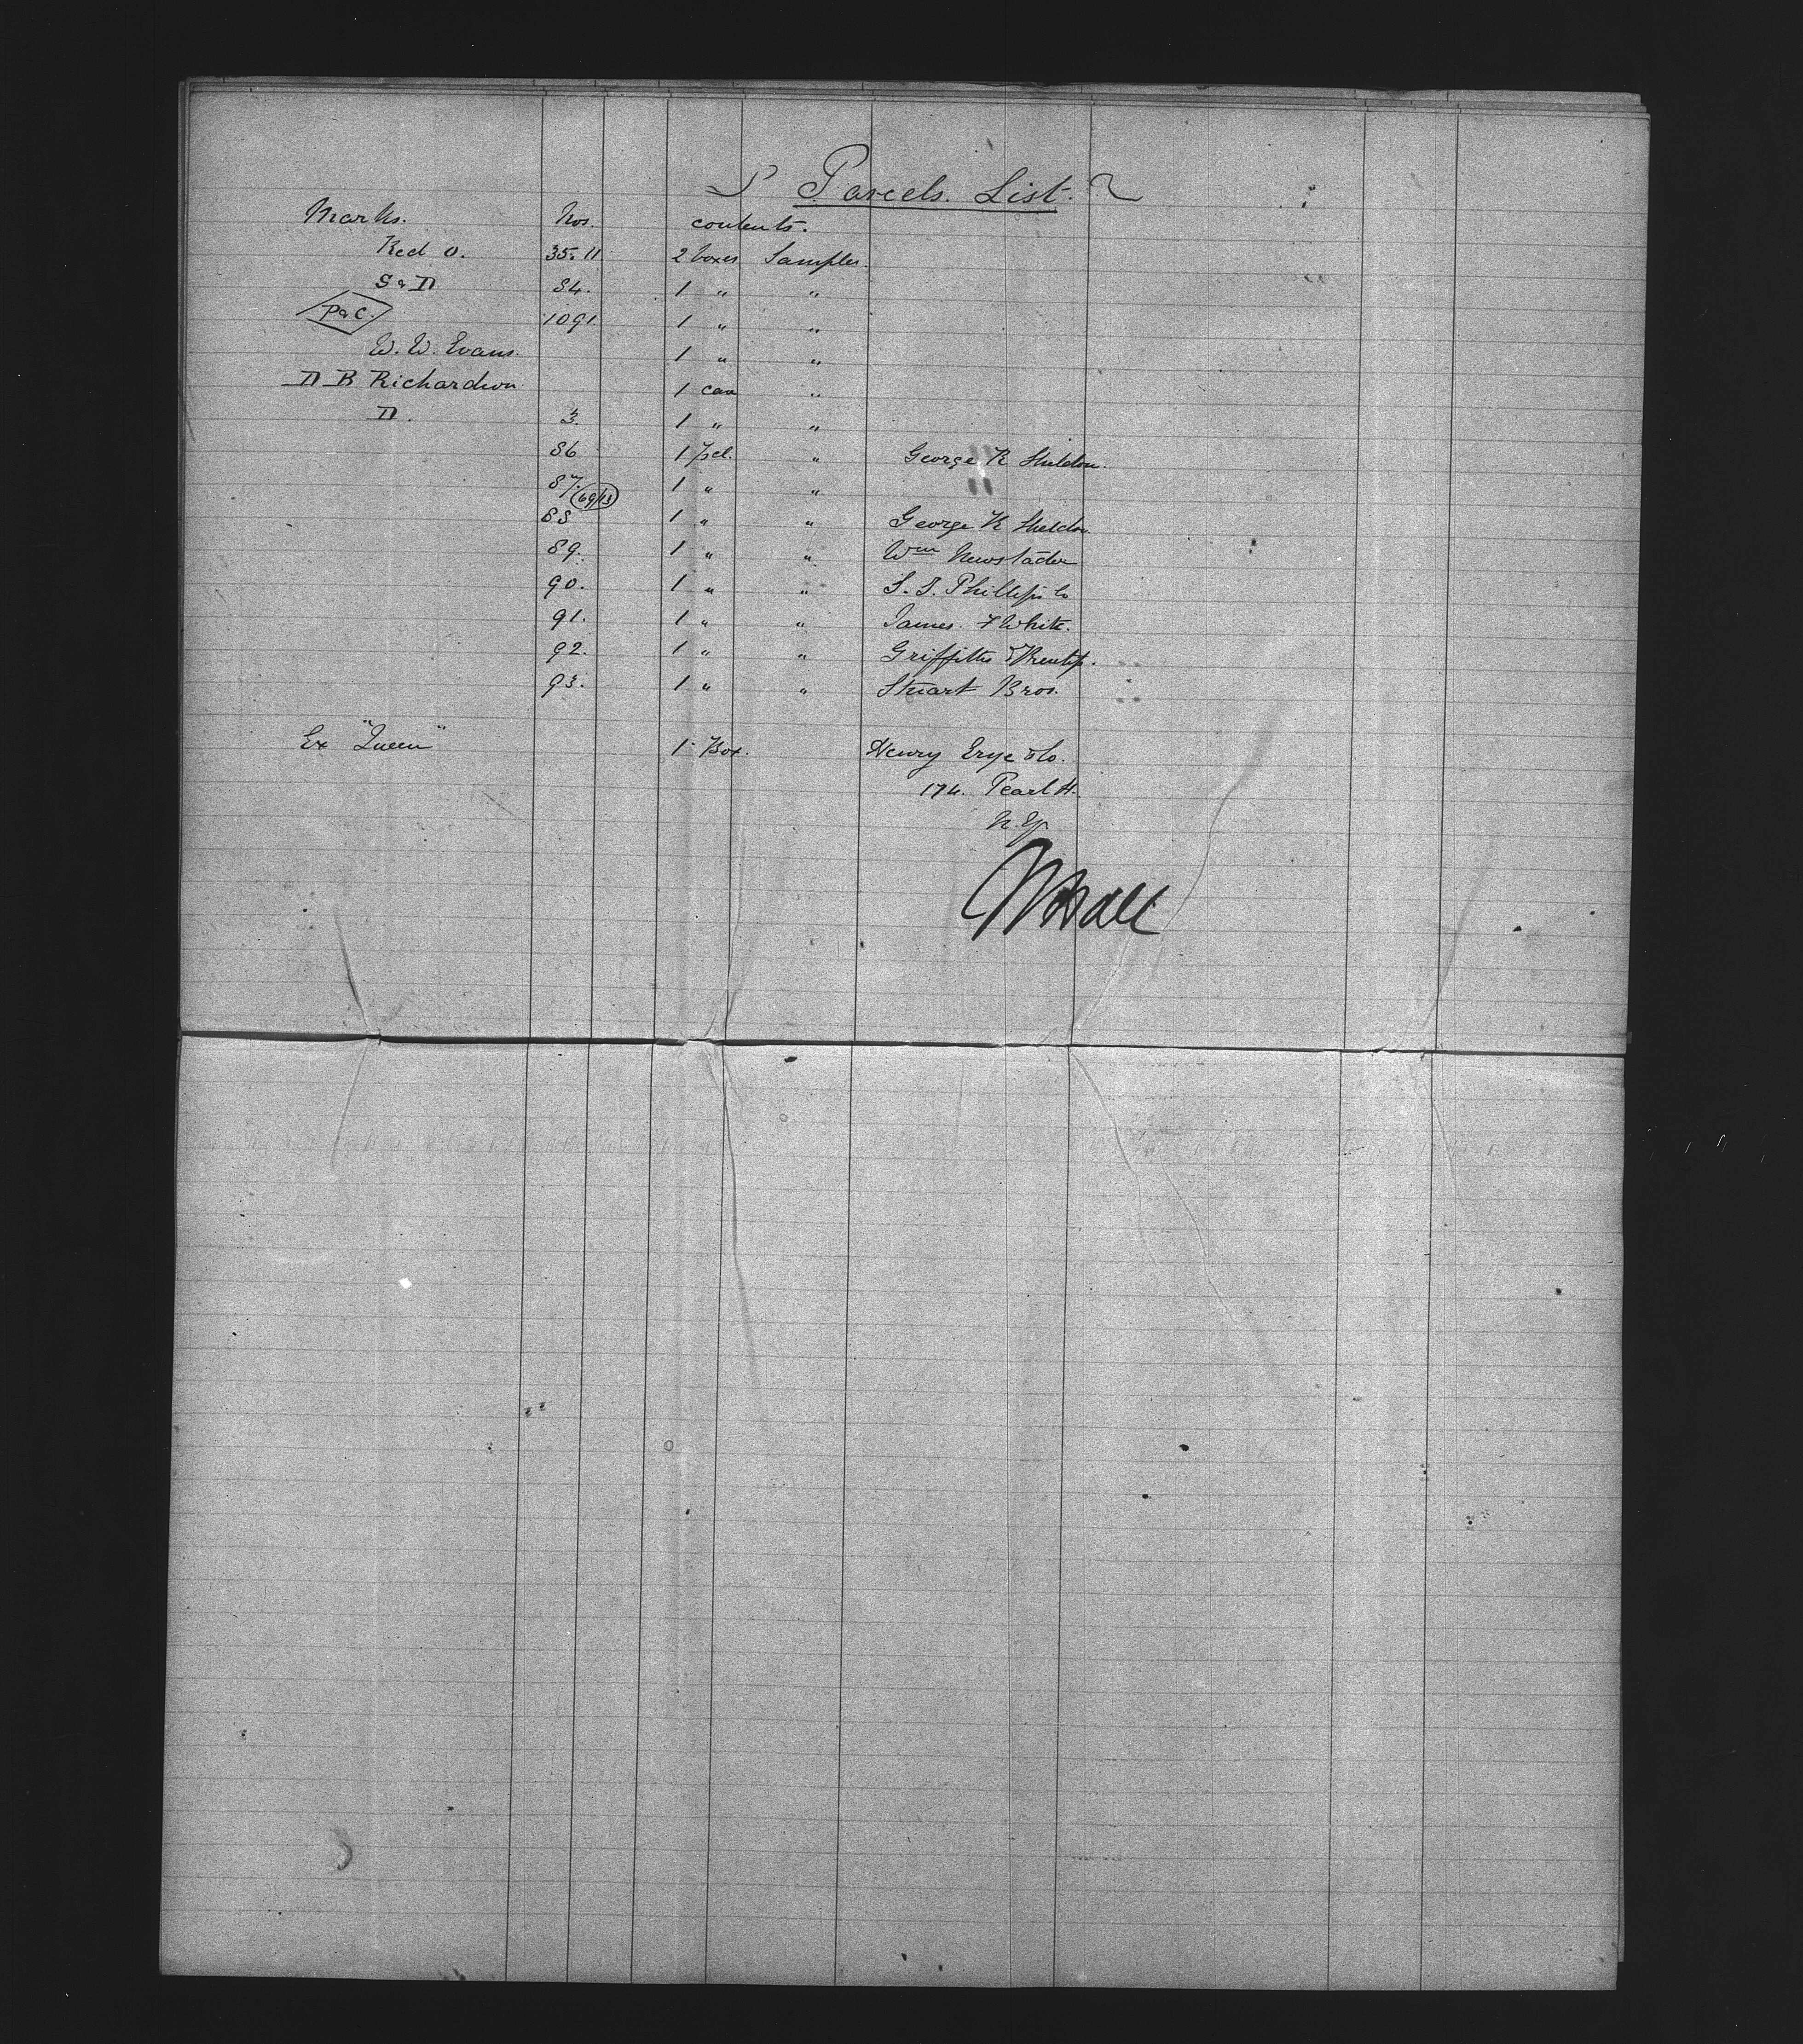 Parcels. List.
Marks. Nos. contents.
Red O. 35.11 2 boxes Samples.
S & D 84. 1 " "
P&C. 1091. 1 " "
W. W. Evans. 1 " "
D B Richardson 1 can "
D. 3. 1 " "
86 1 Pcl. " George R Sheldon.
87. 69/13 1 " "
88 1 " " George R Sheldon
89. 1 " " Wm Newstader
90. 1 " " Phillips Co
91. 1 " " James. F White.
92. 1 " " Griffiths &
93. 1 " " Stuart Bros.
Ex "Queen" 1 Box. Henry & Co.
174. Pearl St.
N. Y.